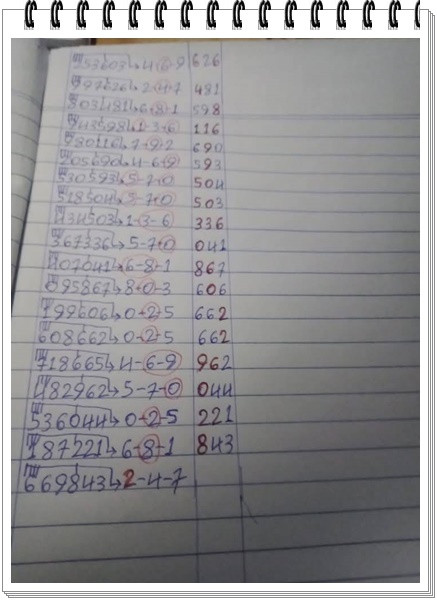 153603→4-6-9 626
997626→2-4-7 481
803481→6-8-1 598
943598→1-3-6 116
980116→7-9-2 690
205690→4-6-9 593
530593→5-7-0 504
518504→5-7-0 503
134503→1-3-6 336
367336→5-7-0 041
407041→6-8-1 867
095867→8-0-3 606
199606→0-2-5 662
608662→0-2-5 662
718665→4-6-9 962
482962→5-7-0 044
536044→0-2-5 221
187221→6-8-1 843
669843→2-4-7